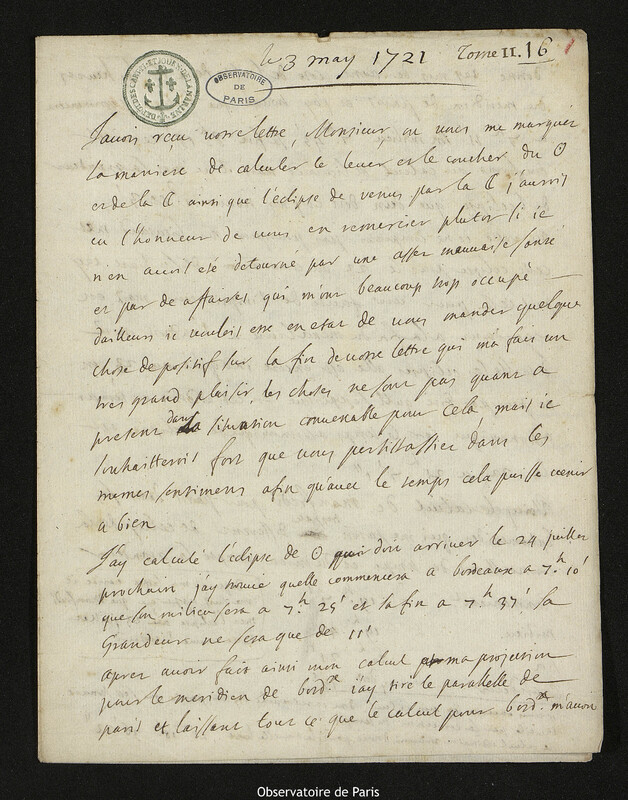 le 3 may 1721 Tome II. 16
DEPOT DES CARTES ET JOUR. DE LA MARINE
OBSERVATOIRE
DE
PARIS
J'avois recu vostre lettre, Monsieur, ou vous me marquez
la maniere de calculer le lever et le coucher du ☉
et de la ☾ ainsi que l'eclipse de venus par la ☾ j'aurois
eu l'honneur de vous en remercier plutot si ie
n'en avois eté detourné par une assez mauvaise santé
et par de affaires qui m'ont beaucoup trop occupé
dailleurs ie voulois estre en etat de vous mander quelque
chose de positif sur la fin de vostre lettre qui m'a fait un
tres grand plaisir, les choses ne sont pas quant a
present dans la situation convenable pour cela, mais ie
souhaitterois fort que vous persistassiez dans les
memes sentimens afin qu'avec le temps cela puisse venir
a bien
J'ay calculé l'eclipse de ☉ qui doit arriver le 24 juillet
prochain j'ay trouvé quelle commencera a bordeaux a 7.h 10'
que son milieu sera a 7.h 25' et la fin a 7.h 37' sa
Grandeur ne sera que de 11'
apres avoir fait ainsi mon calcul ma projection
pour le meridien de bord.x j'ay tiré le parallelle de
paris et laissant tout ce que le calcul pour bord.x m'avoit
Observatoire de Paris